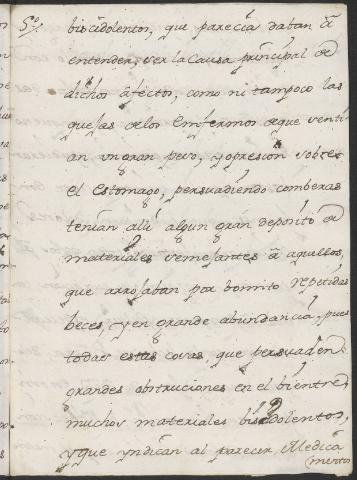 5º/.
biscidolentos, que parecia daban â
entender, ser la Causa principal de
dichos âfectos, como ni tampoco las
quejas delos Enfermos deque senti-
an un gran peso, y opresion sobre
el Estomago, persuadiendo comberas
tenian alli algun gran deposito de
materiales semejantes â aquellos,
que arrojaban por bomito repetidas
beces, y en grande abundancia, pues
todas estas cosas, que persuaden
grandes obstruciones en el bientre,
muchos materiales biscidolentos,
y que yndican al parecer, Medica
mentos